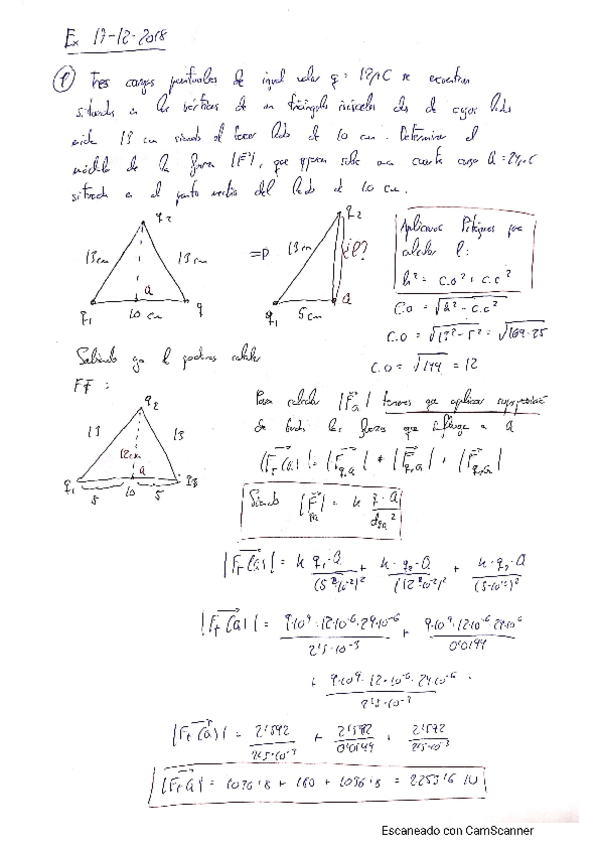 Ex 17-12-2018
① Tres cargas puntuales de igual valor q = 12μC se encuentran
situadas en los vértices de un triángulo isósceles dos de cuyos lados
mide 13 cm siendo el tercer lado de 10 cm. Determinar el
módulo de la fuerza |F|, que ejercen sobre una cuarta carga Q = 24μC
situada en el punto medio del lado de 10 cm.
q2
13cm 13cm
Q
q1 10 cm q
=D
q2
13cm ¿l?
Q
q1 5cm
Aplicamos Pitágoras para
calcular l:
h² = c.o² + c.c²
C.O = √h² - c.c²
C.O = √13² - 5² = √169-25
C.O = √144 = 12
Sabiendo ya l podemos calcular
FF :
q2
13 13
12cm
Q
q1 5 10 5 q3
Para calcular |FQ| tenemos que aplicar superposición
de todas las fuerzas que influyen a Q
|FT(Q)| = |Fq1Q| + |Fq2Q| + |Fq3Q|
Siendo |F| = K q·Q / d²
|FT(Q)| = K q1·Q / (5·10-2)² + K·q2·Q / (12·10-2)² + K·q3·Q / (5·10-2)²
|FT(Q)| = 9·10⁹·12·10-6·24·10-6 / 2'5·10-3 + 9·10⁹·12·10-6·24·10-6 / 0'0144
+ 9·10⁹·12·10-6·24·10-6 / 2'5·10-3
|FT(Q)| = 2'592 / 2'5·10-3 + 2'592 / 0'0144 + 2'592 / 2'5·10-3
|FT(Q)| = 1036'8 + 180 + 1036'8 = 2253'6 N
Escaneado con CamScanner